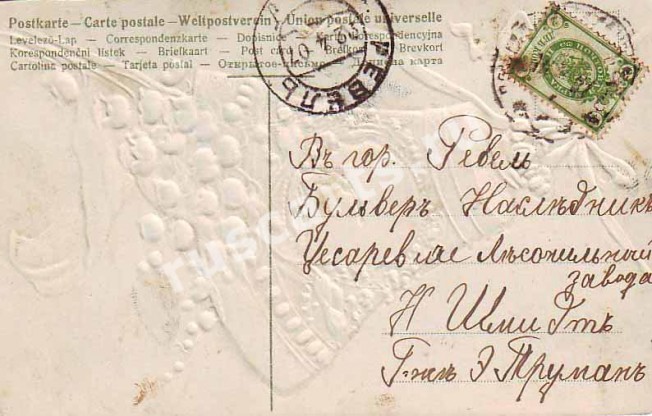 Postkarte — Carte postale — Weltpostverein — Union postale universelle
Levelező-Lap — Correspondenzkarte — Dopisnice — Karta Korespondencyjna
Korespondenční lístek — Briefkaart — Post card — Brefkort — Brevkort
Cartolina postale — Tarjeta postal — Открытое письмо — Дописна карта
РЕВЕЛЬ
Въ гор. Ревель
Бульверъ Наслѣдникъ
Цесаревиче Лѣсопильный
завода
Н Шмидтъ
Г-жѣ Э Труманъ